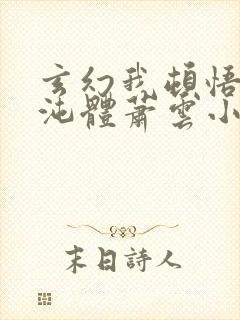 玄幻我頓悟
沌體蕭雲小
末日詩人